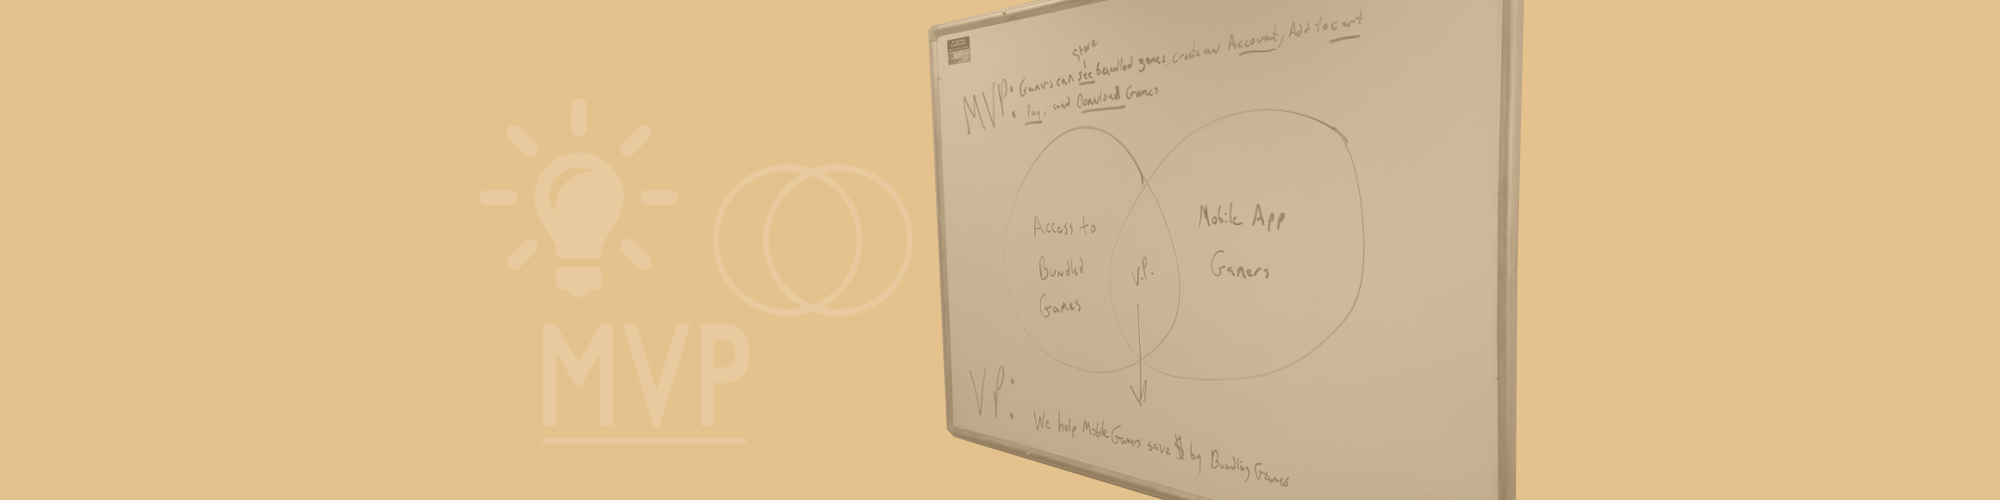 MVP
Store
MVP: Gamers can see bundled games, create an Account, Add to cart
Pay, and Download Games
Access to
Bundled
Games
V.P.
Mobile App
Gamers
VP:
We help Mobile Gamers save $ by Bundling Games